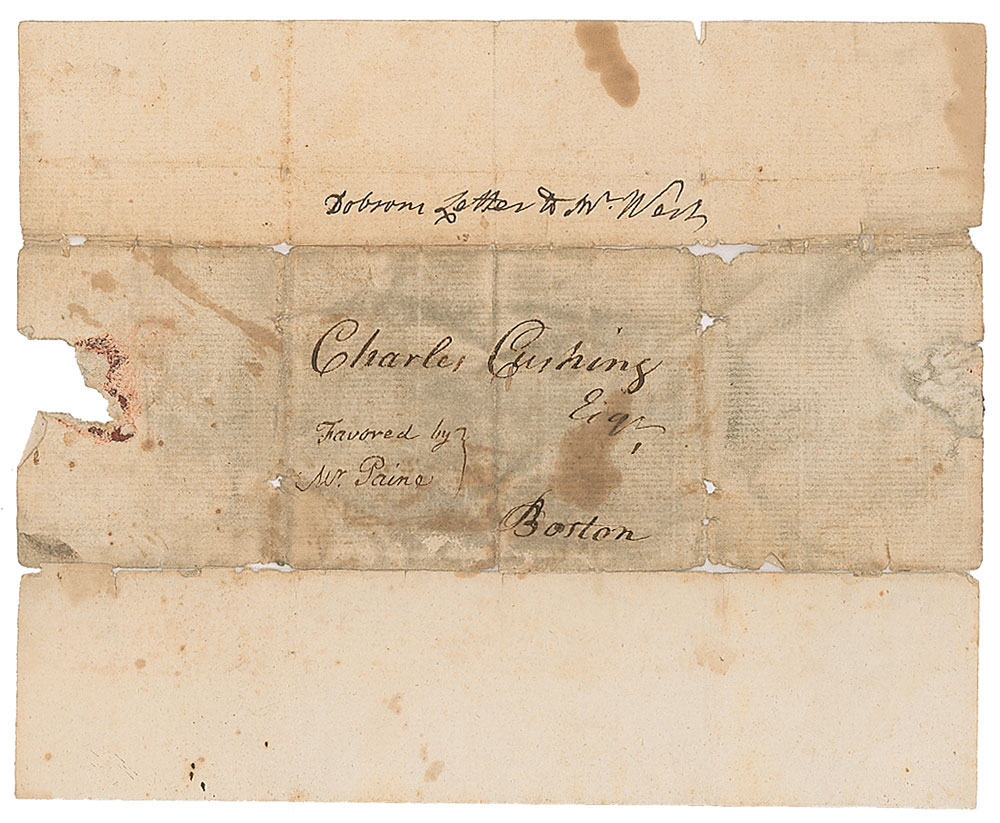 Dobsons Letter to Mr. West
Charles Cushing
Esqr,
Favored by
Mr. Paine
Boston